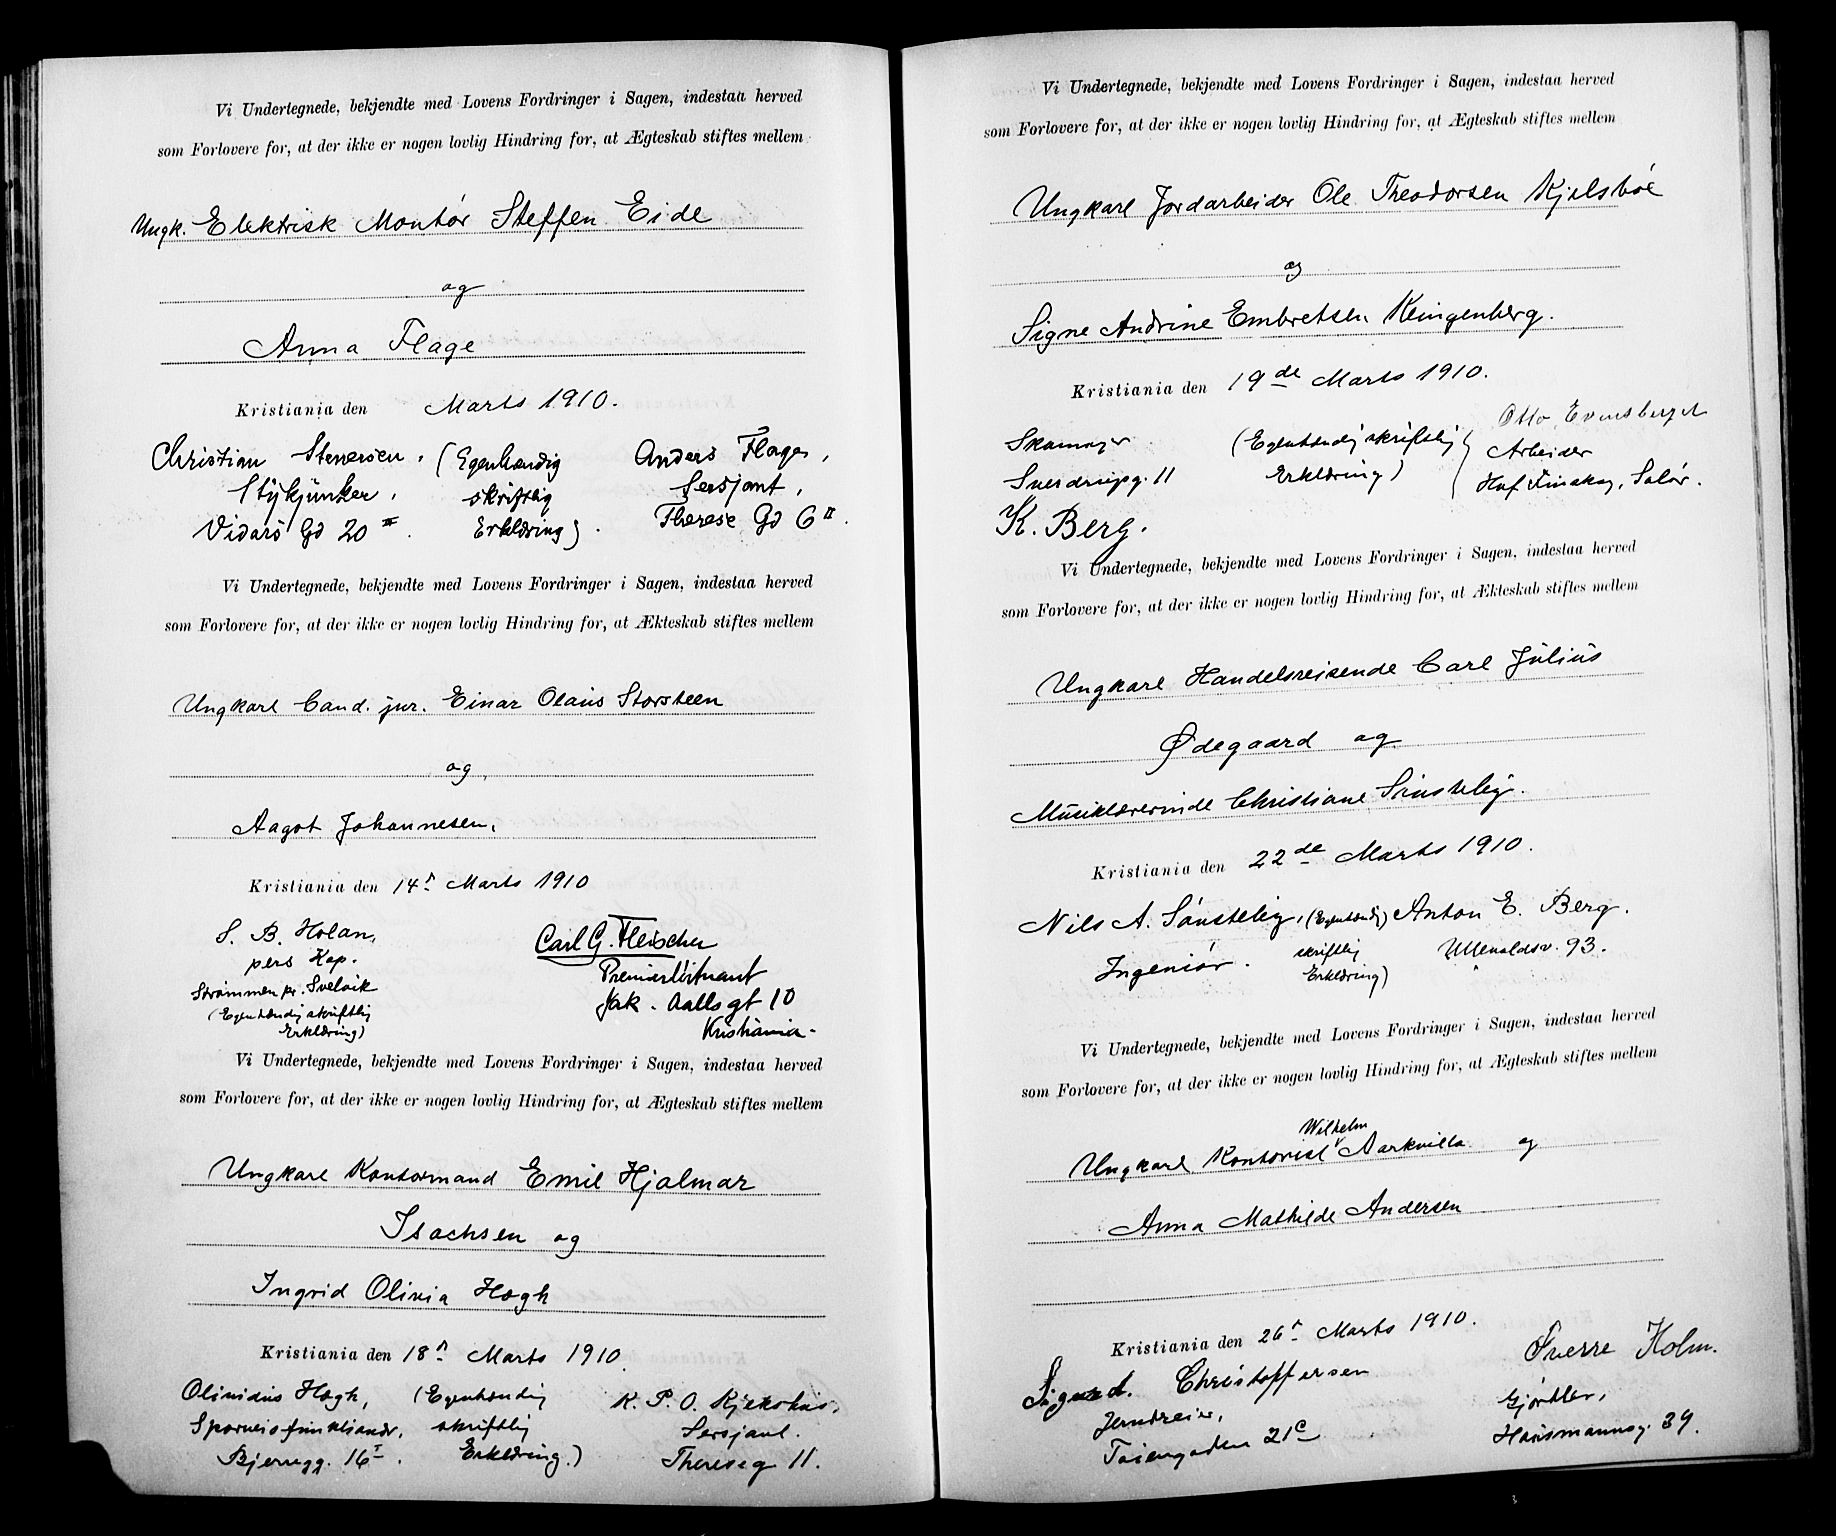 Vi Undertegnede, bekjendte med Lovens Fordringer i Sagen, indestaa herved
som Forlovere for, at der ikke er nogen lovlig Hindring for, at Ægteskab stiftes mellem
Ungk. Elektrisk Montör Steffen Eide
og
Anna Flage
Kristiania den Marts 1910.
Christian Stenersen, (Egenhændig Anders Flage,
Stykjunker, skriftlig Sersjant,
Vidars Gd 20 III. Erklæring). Therese Gd 6 II.
Vi Undertegnede, bekjendte med Lovens Fordringer i Sagen, indestaa herved
som Forlovere for, at der ikke er nogen lovlig Hindring for, at Ækteskab stiftes mellem
Ungkarl Cand. jur. Einar Olaus Storsteen
og
Aagot Johannesen.
Kristiania den 14de Marts 1910
S. B. Holan, Carl G. Fleischer
pers Kap. Premierløitnant
Strömmen pr. Svelvik Jak. Aalls gt 10
(Egenhændig skriftlig Kristiania.
Erklæring)
Vi Undertegnede, bekjendte med Lovens Fordringer i Sagen, indestaa herved
som Forlovere for, at der ikke er nogen lovlig Hindring for, at Ægteskab stiftes mellem
Ungkarl Kontormand Emil Hjalmar
Isachsen og
Ingrid Olivia Høgh
Kristiania den 18de Marts 1910.
Olinidus Høgh, (Egenhændig K. P. O.
Sporveisfunktionær, skriftlig Sersjant.
Bjerregg. 16 I. Erklæring.) Thereseg 11.
Vi Undertegnede, bekjendte med Lovens Fordringer i Sagen, indestaa herved
som Forlovere for, at der ikke er nogen lovlig Hindring for, at Ægteskab stiftes mellem
Ungkarl Jordarbeider Ole Theodorsen Kjelsböe
og
Signe Andrine Embretsen Klingenberg.
Kristiania den 19de Marts 1910.
Otto Evensberget
Skomager (Egenhændig skriftlig Arbeider
Sverdrupg. 11 Erklæring) Hof Finskog, Solör.
K. Berg.
Vi Undertegnede, bekjendte med Lovens Fordringer i Sagen, indestaa herved
som Forlovere for, at der ikke er nogen lovlig Hindring for, at Ækteskab stiftes mellem
Ungkarl Handelsreisende Carl Julius
Ødegaard og
Musiklærerinde Christiane Sönsteby.
Kristiania den 22de Marts 1910.
Nils A. Sönsteby, (Egenhændig Anton E. Berg.
Ingeniör. skriftlig Ullevoldsv. 93.
Erklæring)
Vi Undertegnede, bekjendte med Lovens Fordringer i Sagen, indestaa herved
som Forlovere for, at der ikke er nogen lovlig Hindring for, at Ægteskab stiftes mellem
Wilhelm
Ungkarl Kontorist Aarkvilla og
Anna Mathilde Andersen
Kristiania den 26de Marts 1910.
Sigurd. Christoffersen Sverre Holm.
Jerndreier, Gjörtler,
Töiengaden 21c Hausmannsg. 39.